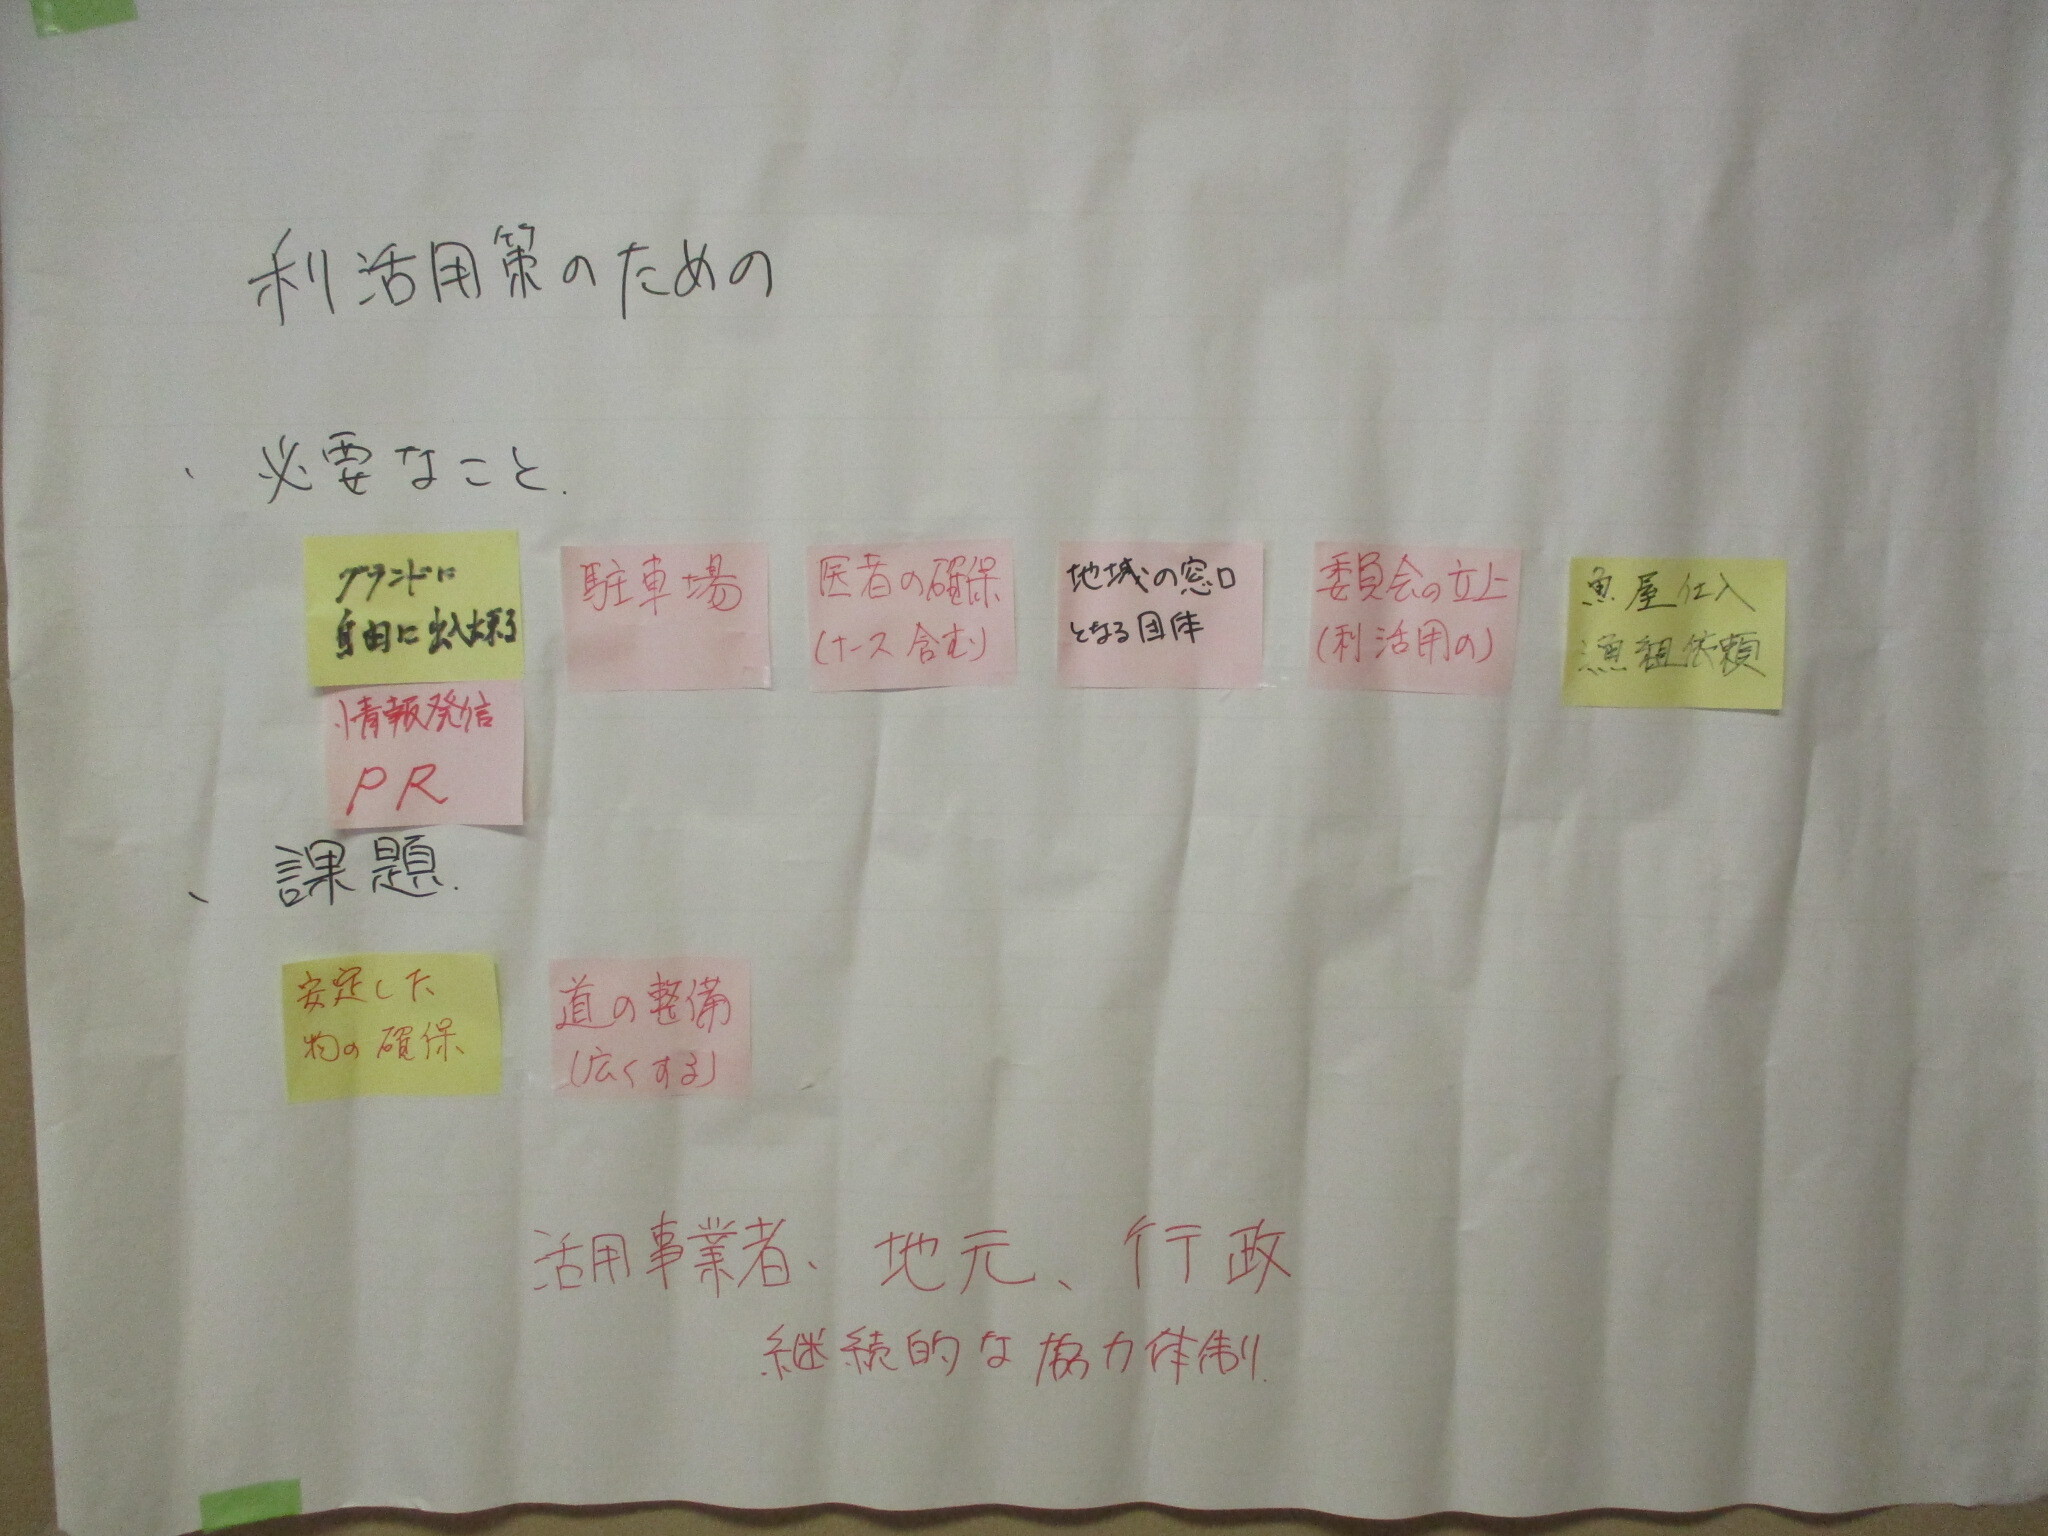 利活用策のための
、必要なこと.
グランドに
自由に出入出来る
駐車場
医者の確保
(ナース含む)
地域の窓口
となる団体
委員会の立上
(利活用の)
魚屋仕入
漁組依頼
情報発信
PR
、課題.
安定した
物の確保
道の整備
(広くする)
活用事業者、地元、行政
継続的な協力体制.